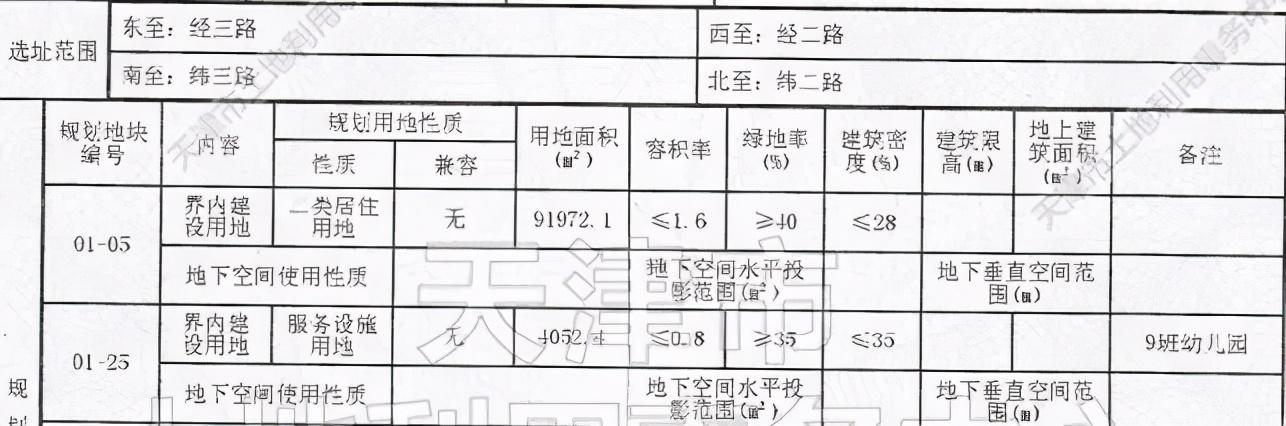 选址范围
东至：经三路
西至：经二路
南至：纬三路
北至：纬二路
规划地块
编号
内容
规划用地性质
性质
兼容
用地面积
(㎡)
容积率
绿地率
(%)
建筑密
度(%)
建筑限
高(m)
地上建
筑面积
(㎡)
备注
01-05
界内建
设用地
二类居住
用地
无
91972.1
≤1.6
≥40
≤28
地下空间使用性质
地下空间水平投
影范围(㎡)
地下垂直空间范
围(m)
01-25
界内建
设用地
服务设施
用地
无
4052.4
≤0.8
≥35
≤35
9班幼儿园
地下空间使用性质
地下空间水平投
影范围(㎡)
地下垂直空间范
围(m)
规
划
天津市土地利用事务中心
天津市土地利用事务中心
天津市